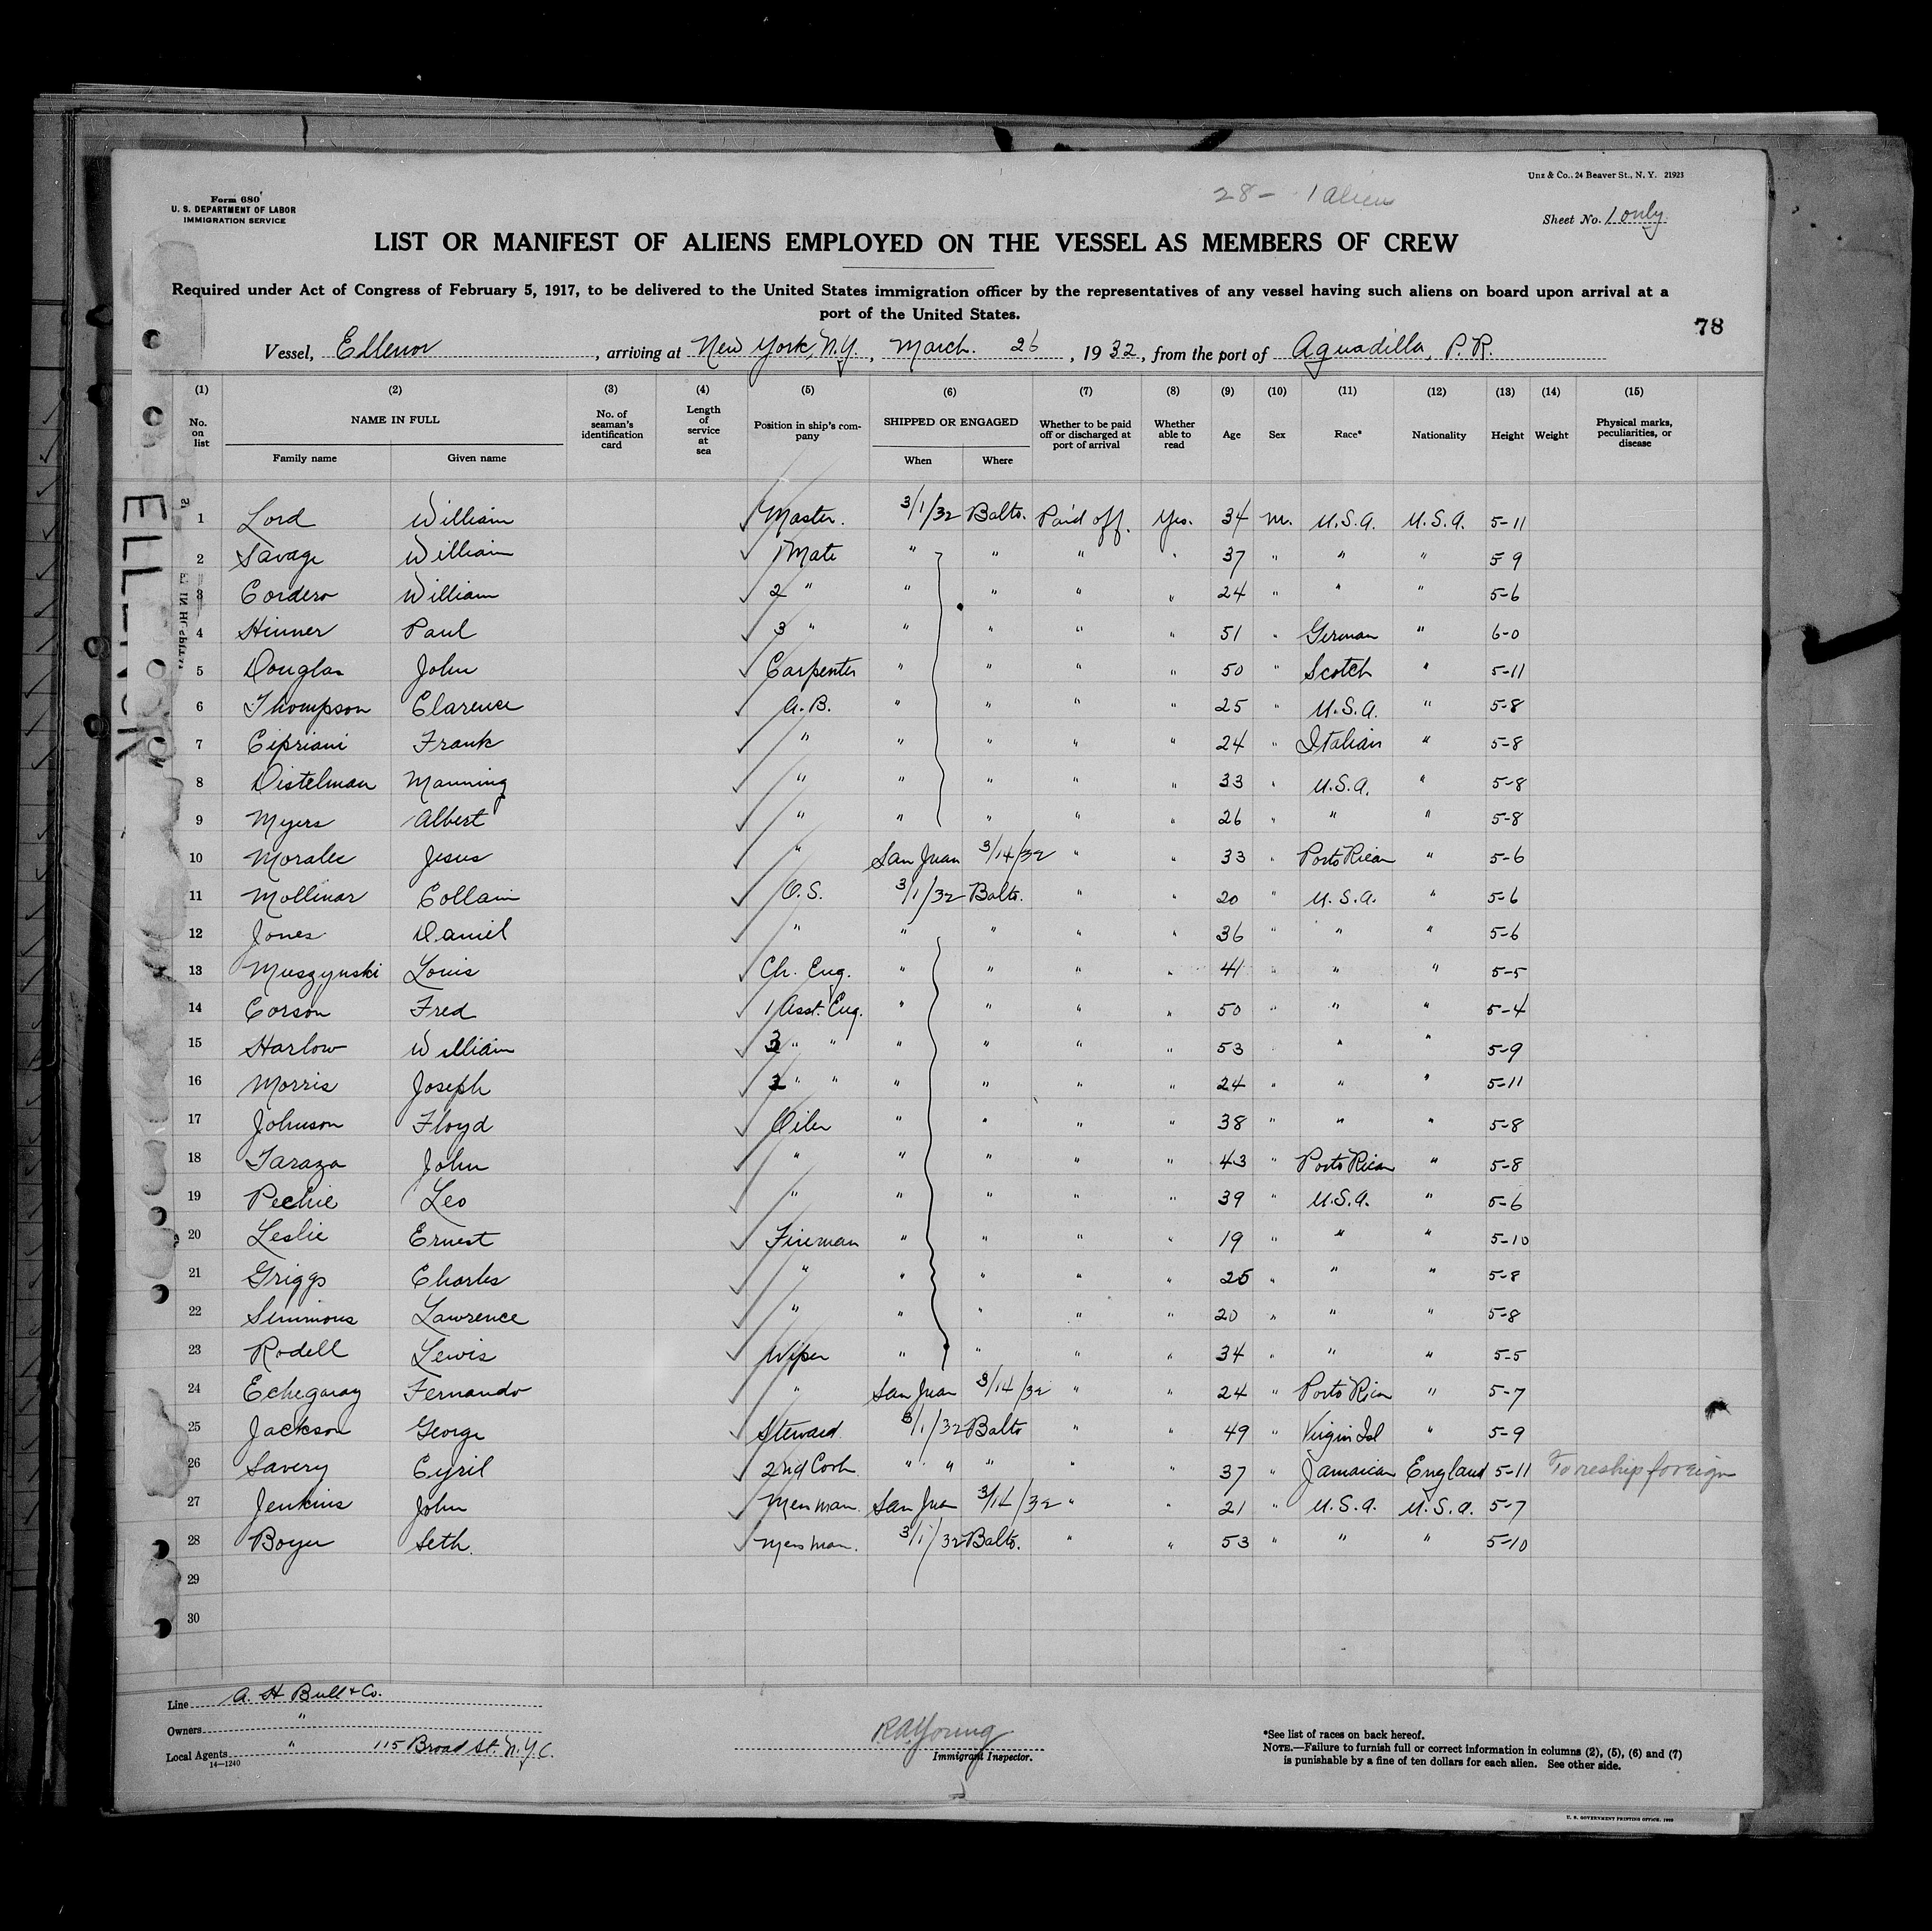 Form 680
U. S. DEPARTMENT OF LABOR
IMMIGRATION SERVICE
28 - 1 alien
Unz & Co., 24 Beaver St., N. Y. 21923
Sheet No. 1 only
LIST OR MANIFEST OF ALIENS EMPLOYED ON THE VESSEL AS MEMBERS OF CREW
Required under Act of Congress of February 5, 1917, to be delivered to the United States immigration officer by the representatives of any vessel having such aliens on board upon arrival at a
port of the United States.
78
Vessel, Ellenor, arriving at New York, N.Y., March. 26, 1932, from the port of Aguadilla, P. R.
(1) (2) (3) (4) (5) (6) (7) (8) (9) (10) (11) (12) (13) (14) (15)
No. on list NAME IN FULL Family name Given name No. of seaman's identification card Length of service at sea Position in ship's company SHIPPED OR ENGAGED When Where Whether to be paid off or discharged at port of arrival Whether able to read Age Sex Race* Nationality Height Weight Physical marks, peculiarities, or disease
ELLENOR
1 Lord William Master. 3/1/32 Balto. Paid off. Yes. 34 M. U.S.A. U.S.A. 5-11
2 Savage William 1 Mate " " " " 37 " " " 5-9
3 Cordero William 2 " " " " " 24 " " " 5-6
4 Hinner Paul 3 " " " " " 51 " German " 6-0
5 Douglas John Carpenter " " " " 50 " Scotch " 5-11
6 Thompson Clarence A.B. " " " " 25 " U.S.A. " 5-8
7 Cipriani Frank " " " " " 24 " Italian " 5-8
8 Distelman Manning " " " " " 33 " U.S.A. " 5-8
9 Myers Albert " " " " " 26 " " " 5-8
10 Morales Jesus " San Juan 3/14/32 " " 33 " Porto Rican " 5-6
11 Mollinar Collain O.S. 3/1/32 Balto. " " 20 U.S.A. " 5-6
12 Jones Daniel " " " " " 36 " " " 5-6
13 Muszynski Louis Ch. Eng. " " " " 41 " " " 5-5
14 Corson Fred 1 Asst. Eng. " " " " 50 " " " 5-4
15 Harlow William " " " " " " 53 " " 5-9
16 Morris Joseph " " " " " " 24 " " " 5-11
17 Johnson Floyd Oiler " " " " 38 " " " 5-8
18 Taraza John " " " " " 43 " Porto Rican " 5-8
19 Pechie Leo " " " " " 39 " U.S.A. " 5-6
20 Leslie Ernest Fireman " " " " 19 " " " 5-10
21 Griggs Charles " " " " " 25 " " " 5-8
22 Simmons Lawrence " " " " " 20 " " " 5-8
23 Rodell Lewis Wiper " " " " 34 " " " 5-5
24 Echegaray Fernando " San Juan 3/14/32 " " 24 " Porto Rican " 5-7
25 Jackson George Steward 3/1/32 Balto " " 49 " Virgin Isl " 5-9
26 Savery Cyril 2nd Cook " " " " " 37 " Jamaican England 5-11 To reship foreign
27 Jenkins John Messman. San Juan 3/14/32 " " 21 " U.S.A. U.S.A. 5-7
28 Boyer Seth. Messman. 3/1/32 Balto. " " 53 " " " 5-10
29
30
Line A. H. Bull & Co.
Owners "
Local Agents " 115 Broad St. N.Y.C.
14—1240
R A Young
Immigrant Inspector.
*See list of races on back hereof.
NOTE.—Failure to furnish full or correct information in columns (2), (5), (6) and (7)
is punishable by a fine of ten dollars for each alien. See other side.